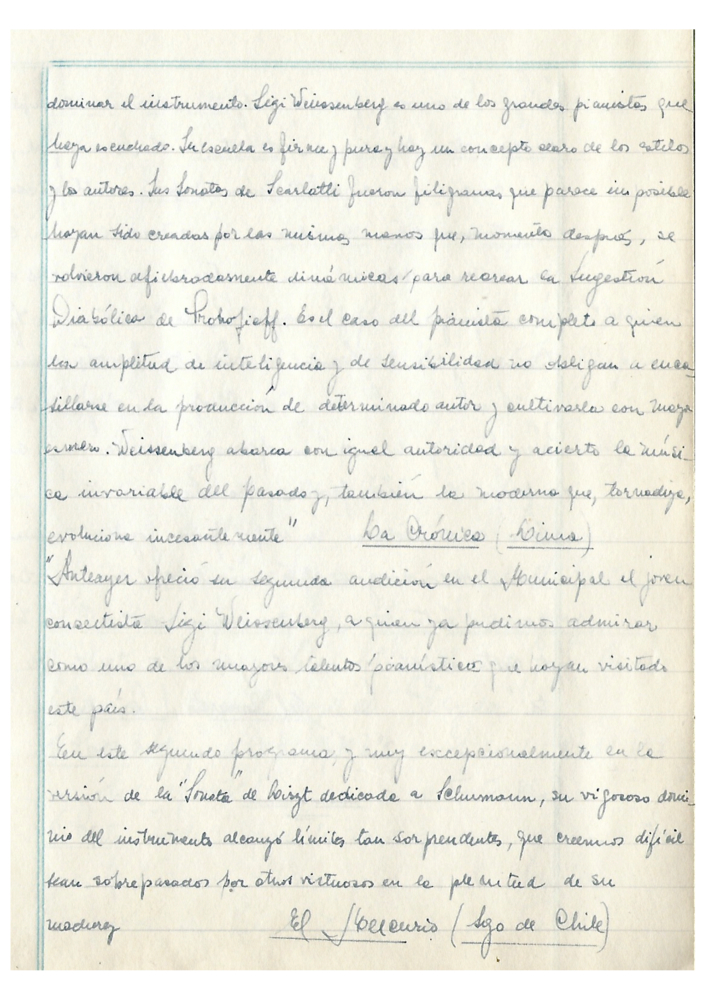 dominar el instrumento. Sigi Weissenberg es uno de los grandes pianistas que
haya escuchado. Su escuela es firme y pura y hay un concepto claro de los estilos
y los autores. Sus Sonatas de Scarlatti fueron filigranas que parece imposible
hayan sido creadas por las mismas manos que, momento después, se
volvieron afiebradamente dinámicas para recrear la Sugestión
Diabólica de Prokofieff. Es el caso del pianista completo a quien
la amplitud de inteligencia y de sensibilidad no obligan a enca-
sillarse en la producción de determinado autor y cultivarla con mayor
esmero. Weissenberg abarca con igual autoridad y acierto la músi-
ca invariable del pasado y, también la moderna que, tornadiza,
evoluciona incesantemente" La Crónica (Lima)
"Anteayer ofreció su segunda audición en el Municipal el joven
concertista Sigi Weissenberg, a quien ya pudimos admirar
como uno de los mayores talentos pianísticos que hayan visitado
este país.
En este segundo programa, y muy excepcionalmente en la
versión de la "Sonata" de Liszt dedicada a Schumann, su vigoroso domi-
nio del instrumento alcanzó límites tan sorprendentes, que creemos difícil
sean sobrepasados por otros virtuosos en la plenitud de su
madurez El Mercurio (Sgo de Chile)